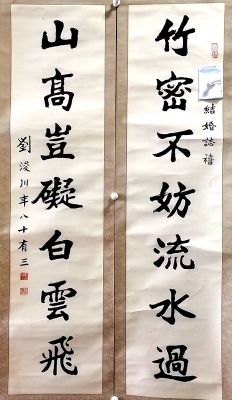 竹密不妨流水過
結婚誌禧
山高豈礙白雲飛
劉浚川年八十有三